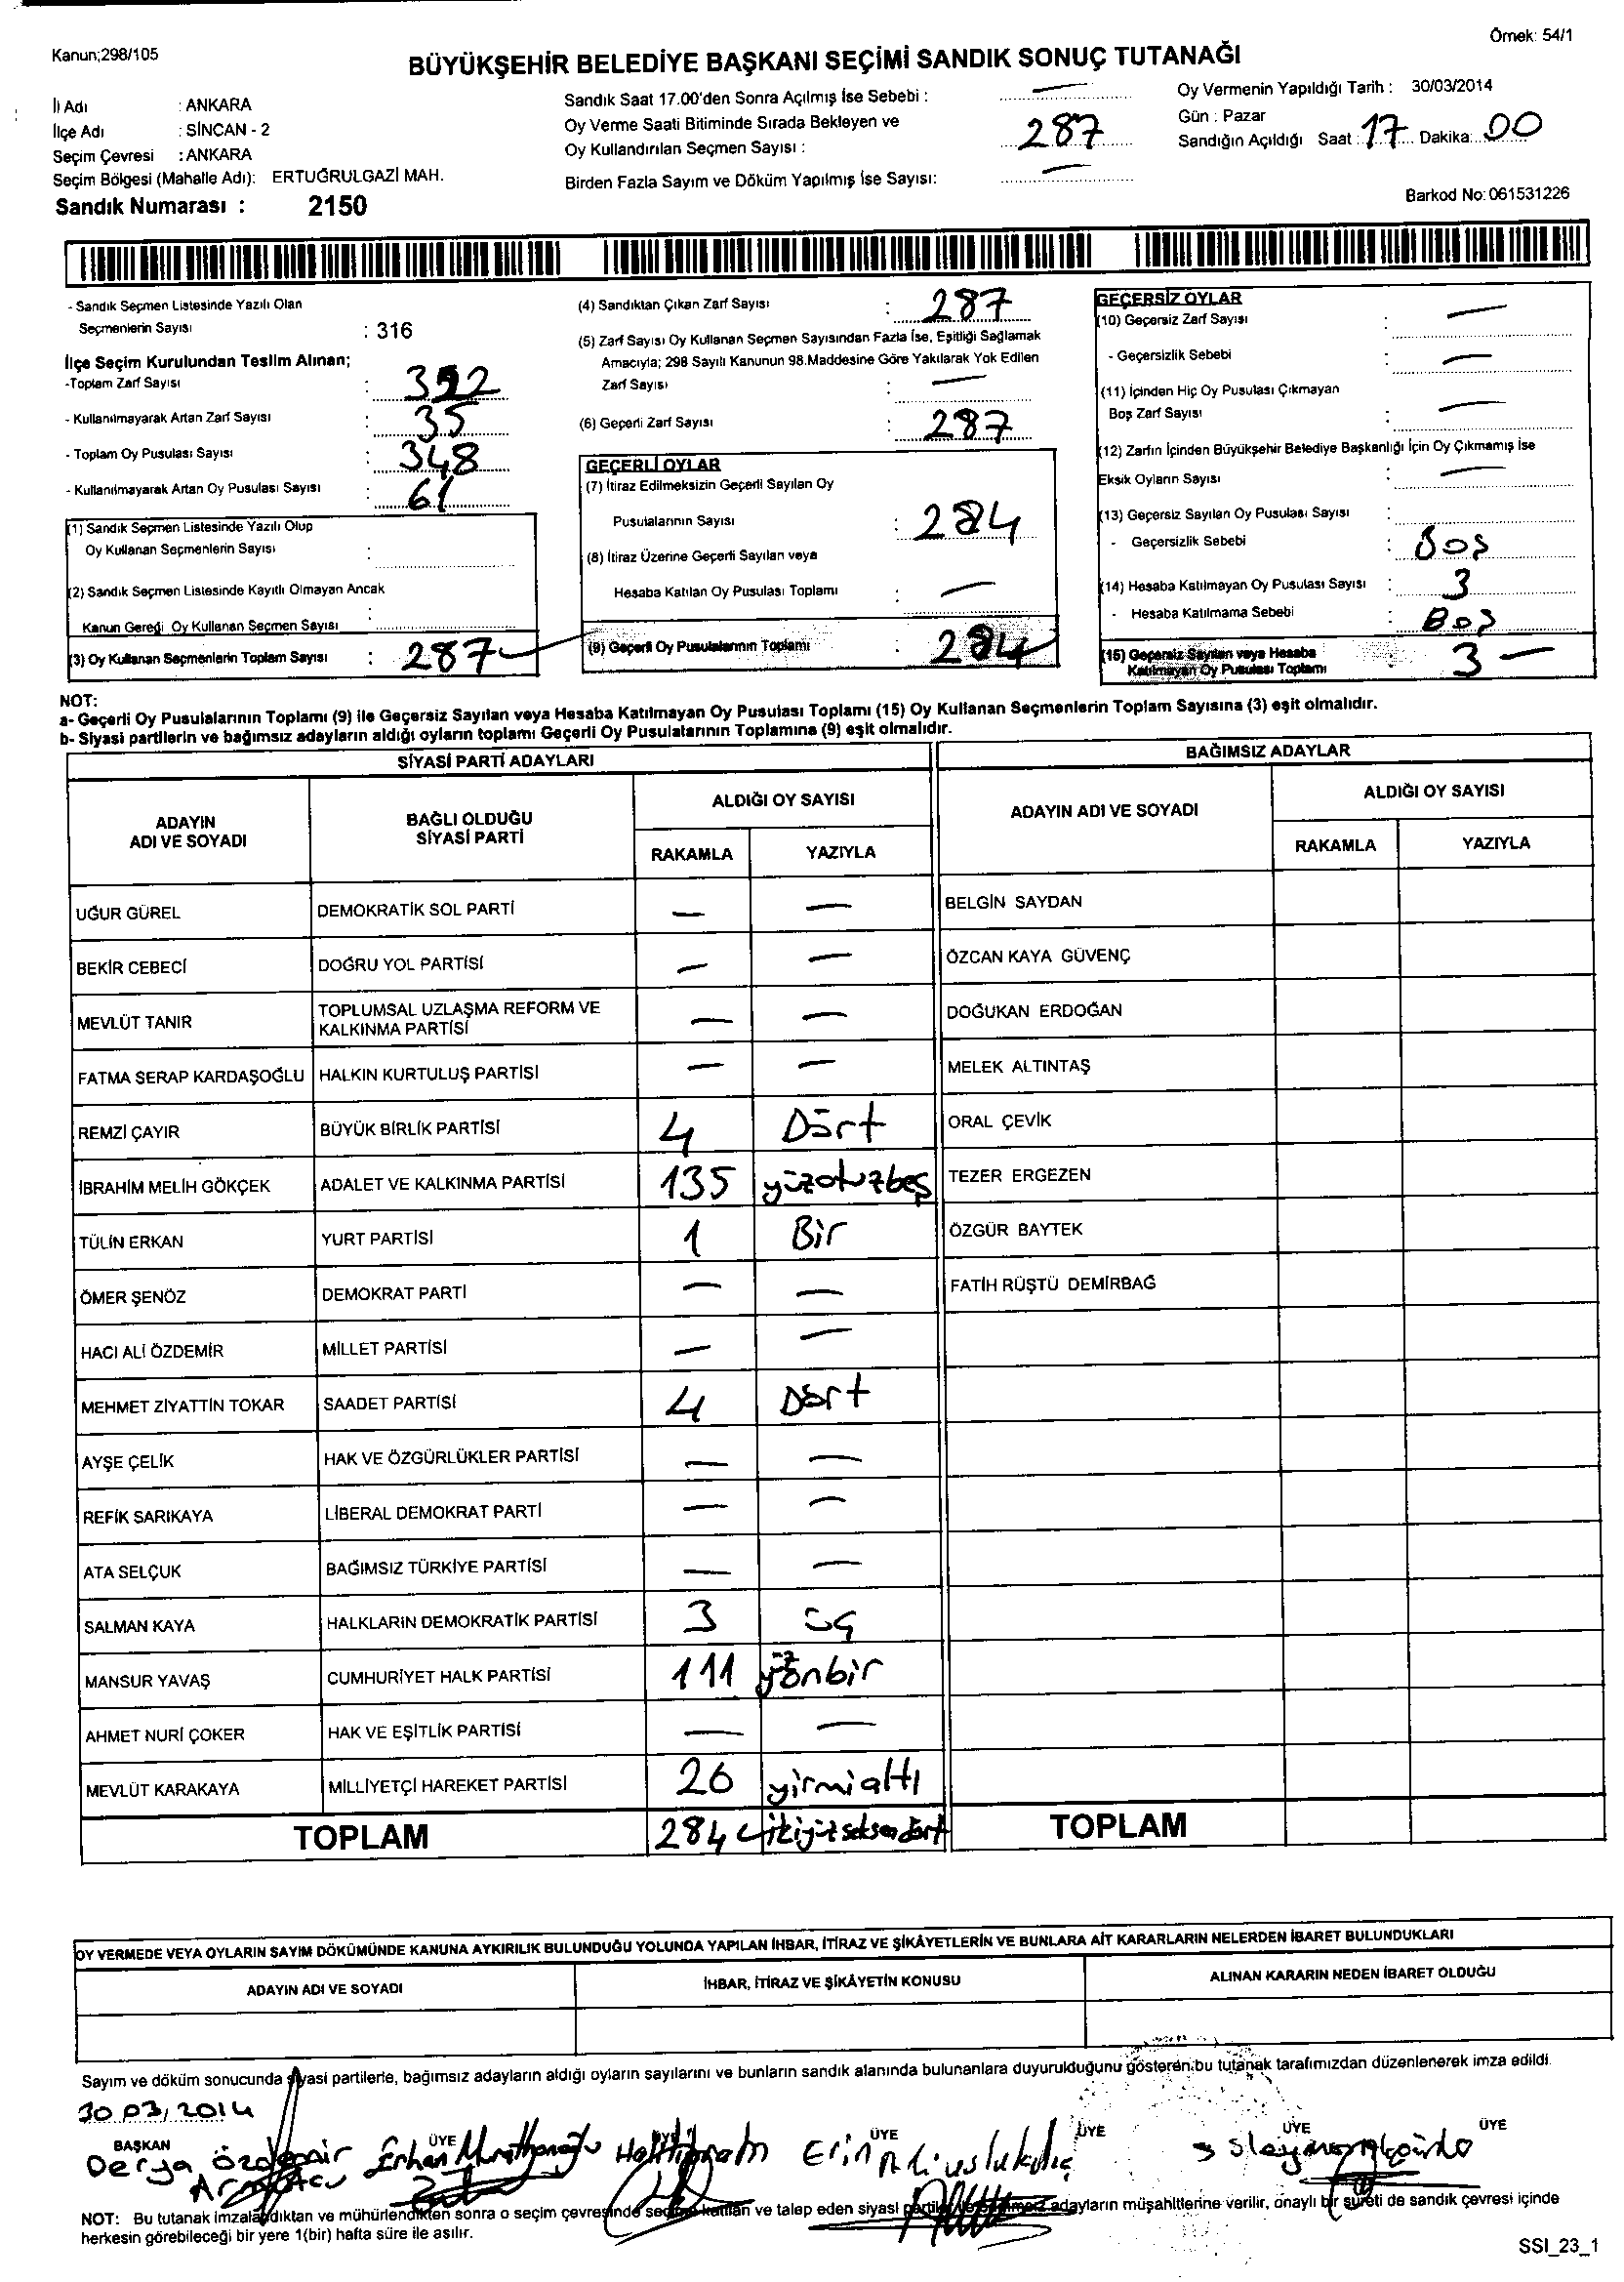 Kanun;298/105
Örnek: 54/1
BÜYÜKŞEHİR BELEDİYE BAŞKANI SEÇİMİ SANDIK SONUÇ TUTANAĞI
İl Adı : ANKARA
İlçe Adı : SİNCAN - 2
Seçim Çevresi : ANKARA
Seçim Bölgesi (Mahalle Adı): ERTUĞRULGAZİ MAH.
Sandık Numarası : 2150
Sandık Saat 17.00'den Sonra Açılmış İse Sebebi : —
Oy Verme Saati Bitiminde Sırada Bekleyen ve
Oy Kullandırılan Seçmen Sayısı : 287
Birden Fazla Sayım ve Döküm Yapılmış İse Sayısı: —
Oy Vermenin Yapıldığı Tarih : 30/03/2014
Gün : Pazar
Sandığın Açıldığı Saat : 17 Dakika: 00
Barkod No: 061531226
- Sandık Seçmen Listesinde Yazılı Olan
Seçmenlerin Sayısı : 316
İlçe Seçim Kurulundan Teslim Alınan;
-Toplam Zarf Sayısı : 
- Kullanılmayarak Artan Zarf Sayısı : 35
- Toplam Oy Pusulası Sayısı : 348
- Kullanılmayarak Artan Oy Pusulası Sayısı : 61
(1) Sandık Seçmen Listesinde Yazılı Olup
Oy Kullanan Seçmenlerin Sayısı :
(2) Sandık Seçmen Listesinde Kayıtlı Olmayan Ancak
Kanun Gereği Oy Kullanan Seçmen Sayısı :
(3) Oy Kullanan Seçmenlerin Toplam Sayısı : 287
(4) Sandıktan Çıkan Zarf Sayısı : 287
(5) Zarf Sayısı Oy Kullanan Seçmen Sayısından Fazla İse, Eşitliği Sağlamak
Amacıyla; 298 Sayılı Kanunun 98.Maddesine Göre Yakılarak Yok Edilen
Zarf Sayısı : —
(6) Geçerli Zarf Sayısı : 287
GEÇERLİ OYLAR
(7) İtiraz Edilmeksizin Geçerli Sayılan Oy
Pusulalarının Sayısı : 284
(8) İtiraz Üzerine Geçerli Sayılan veya
Hesaba Katılan Oy Pusulası Toplamı : —
(9) Geçerli Oy Pusulalarının Toplamı : 284
GEÇERSİZ OYLAR
(10) Geçersiz Zarf Sayısı : —
- Geçersizlik Sebebi : —
(11) İçinden Hiç Oy Pusulası Çıkmayan
Boş Zarf Sayısı : —
(12) Zarfın İçinden Büyükşehir Belediye Başkanlığı İçin Oy Çıkmamış İse
Eksik Oyların Sayısı : —
(13) Geçersiz Sayılan Oy Pusulası Sayısı :
- Geçersizlik Sebebi : Boş
(14) Hesaba Katılmayan Oy Pusulası Sayısı : 3
- Hesaba Katılmama Sebebi : Boş
(15) Geçersiz Sayılan veya Hesaba
Katılmayan Oy Pusulası Toplamı : 3 —
NOT:
a- Geçerli Oy Pusulalarının Toplamı (9) ile Geçersiz Sayılan veya Hesaba Katılmayan Oy Pusulası Toplamı (15) Oy Kullanan Seçmenlerin Toplam Sayısına (3) eşit olmalıdır.
b- Siyasi partilerin ve bağımsız adayların aldığı oyların toplamı Geçerli Oy Pusulalarının Toplamına (9) eşit olmalıdır.
SİYASİ PARTİ ADAYLARI
BAĞIMSIZ ADAYLAR
ADAYIN
ADI VE SOYADI
BAĞLI OLDUĞU
SİYASİ PARTİ
ALDIĞI OY SAYISI
RAKAMLA YAZIYLA
ADAYIN ADI VE SOYADI
ALDIĞI OY SAYISI
RAKAMLA YAZIYLA
UĞUR GÜREL DEMOKRATİK SOL PARTİ — — BELGİN SAYDAN
BEKİR CEBECİ DOĞRU YOL PARTİSİ — — ÖZCAN KAYA GÜVENÇ
MEVLÜT TANIR TOPLUMSAL UZLAŞMA REFORM VE
KALKINMA PARTİSİ — — DOĞUKAN ERDOĞAN
FATMA SERAP KARDAŞOĞLU HALKIN KURTULUŞ PARTİSİ — — MELEK ALTINTAŞ
REMZİ ÇAYIR BÜYÜK BİRLİK PARTİSİ 4 Dört ORAL ÇEVİK
İBRAHİM MELİH GÖKÇEK ADALET VE KALKINMA PARTİSİ 135 yüzotuzbeş TEZER ERGEZEN
TÜLİN ERKAN YURT PARTİSİ 1 Bir ÖZGÜR BAYTEK
ÖMER ŞENÖZ DEMOKRAT PARTİ — — FATİH RÜŞTÜ DEMİRBAĞ
HACI ALİ ÖZDEMİR MİLLET PARTİSİ — —
MEHMET ZİYATTİN TOKAR SAADET PARTİSİ 4 Dört
AYŞE ÇELİK HAK VE ÖZGÜRLÜKLER PARTİSİ — —
REFİK SARIKAYA LİBERAL DEMOKRAT PARTİ — —
ATA SELÇUK BAĞIMSIZ TÜRKİYE PARTİSİ — —
SALMAN KAYA HALKLARIN DEMOKRATİK PARTİSİ 3 üç
MANSUR YAVAŞ CUMHURİYET HALK PARTİSİ 111 yüzonbir
AHMET NURİ ÇOKER HAK VE EŞİTLİK PARTİSİ — —
MEVLÜT KARAKAYA MİLLİYETÇİ HAREKET PARTİSİ 26 yirmialtı
TOPLAM 284 ikiyüzseksendört TOPLAM
OY VERMEDE VEYA OYLARIN SAYIM DÖKÜMÜNDE KANUNA AYKIRILIK BULUNDUĞU YOLUNDA YAPILAN İHBAR, İTİRAZ VE ŞİKÂYETLERİN VE BUNLARA AİT KARARLARIN NELERDEN İBARET BULUNDUKLARI
ADAYIN ADI VE SOYADI İHBAR, İTİRAZ VE ŞİKÂYETİN KONUSU ALINAN KARARIN NEDEN İBARET OLDUĞU
Sayım ve döküm sonucunda siyasi partilerle, bağımsız adayların aldığı oyların sayılarını ve bunların sandık alanında bulunanlara duyurulduğunu gösteren bu tutanak tarafımızdan düzenlenerek imza edildi.
30.03.2014
BAŞKAN ÜYE ÜYE ÜYE ÜYE ÜYE ÜYE
Derya Özdemir Erhan
NOT: Bu tutanak imzalandıktan ve mühürlendikten sonra o seçim çevresinde seçime katılan ve talep eden siyasi partiler ile bağımsız adayların müşahitlerine verilir, onaylı bir sureti de sandık çevresi içinde
herkesin görebileceği bir yere 1(bir) hafta süre ile asılır.
SSI_23_1